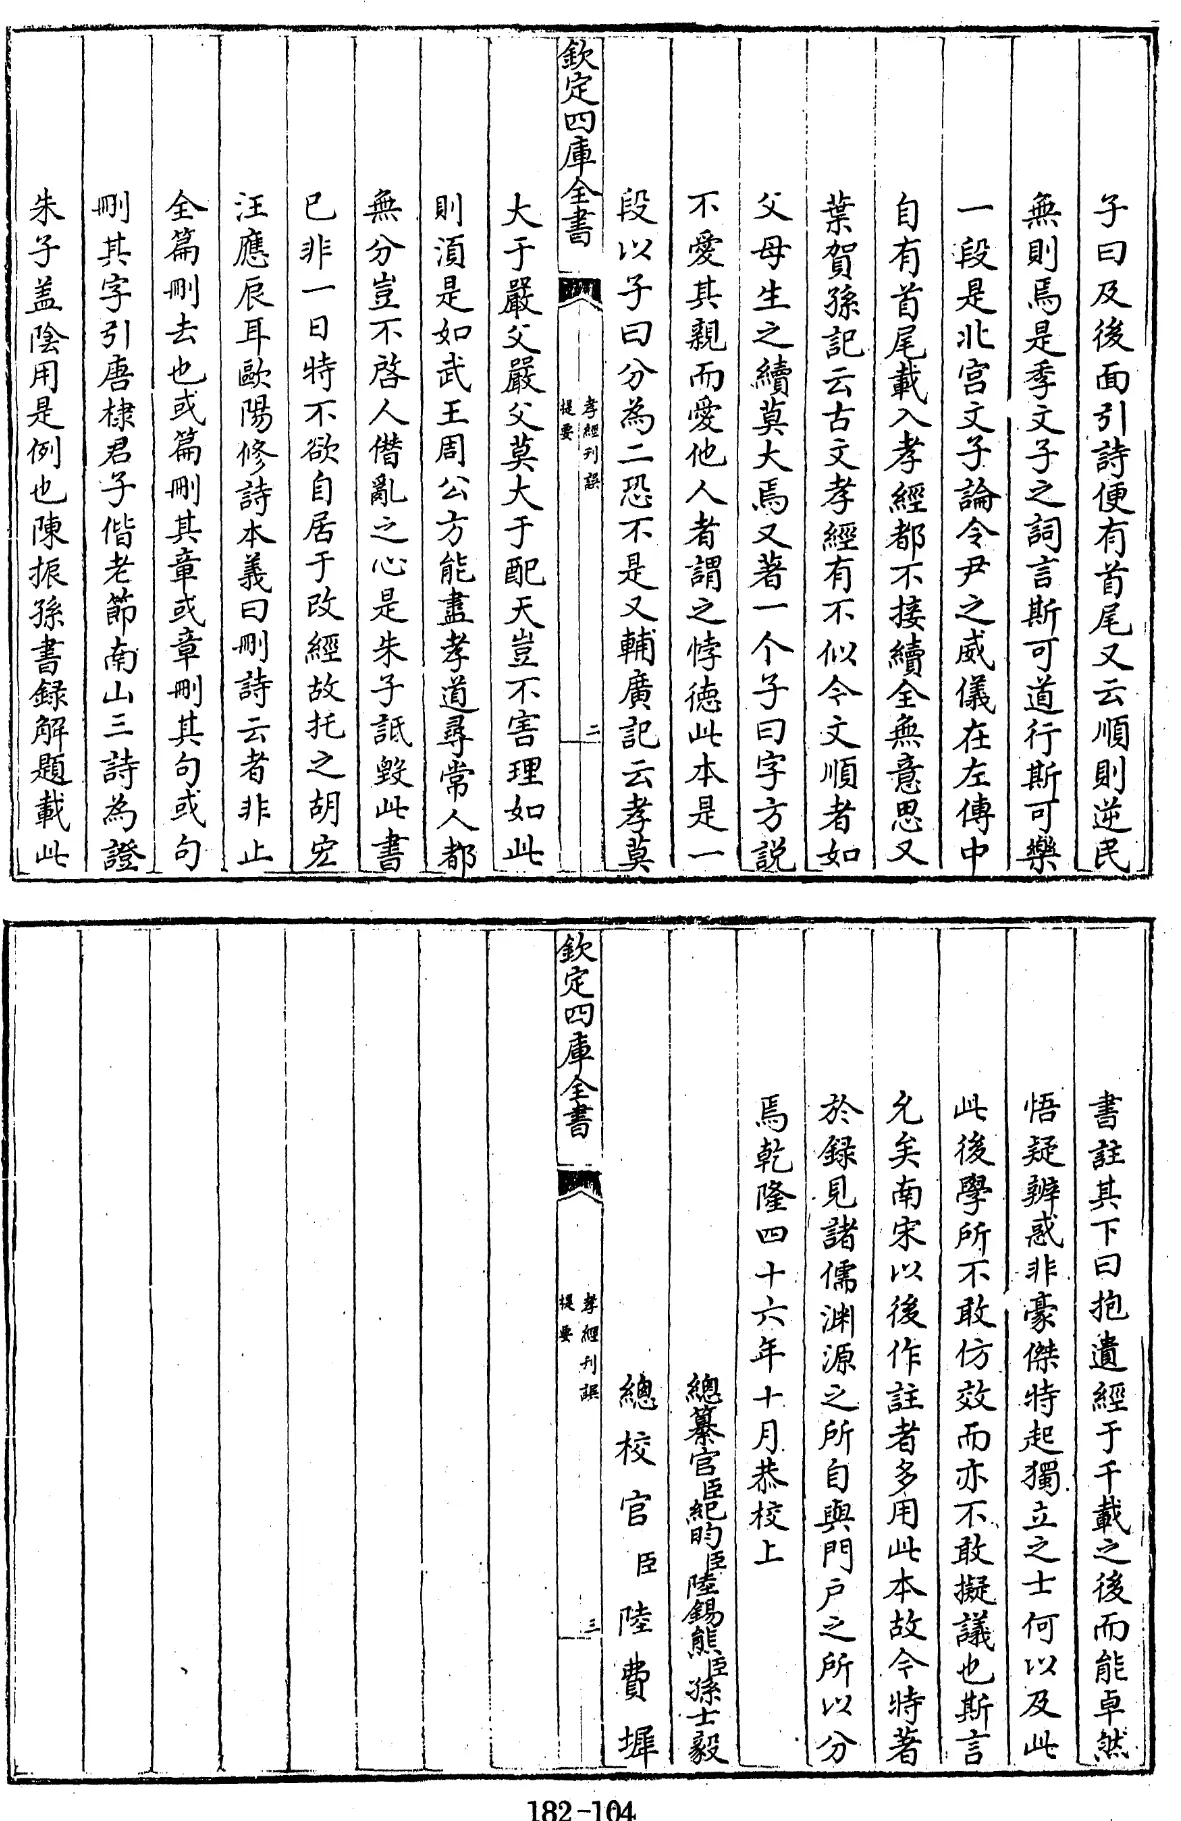 子曰及後面引詩便有首尾又云順則逆民
無則焉是季文子之詞言斯可道行斯可樂
一段是北宮文子論令尹之威儀在左傳中
自有首尾載入孝經都不接續全無意思又
葉賀孫記云古文孝經有不似今文順者如
父母生之續莫大焉又著一个子曰字方說
不愛其親而愛他人者謂之悖德此本是一
段以子曰分為二恐不是又輔廣記云孝莫
欽定四庫全書
孝經刊誤
提要
二
大于嚴父嚴父莫大于配天豈不害理如此
則須是如武王周公方能盡孝道尋常人都
無分豈不啓人僭亂之心是朱子詆毀此書
已非一日特不欲自居于改經故托之胡宏
汪應辰耳歐陽修詩本義曰刪詩云者非止
全篇刪去也或篇刪其章或章刪其句或句
刪其字引唐棣君子偕老節南山三詩為證
朱子盖陰用是例也陳振孫書録解題載此
書註其下曰抱遺經于千載之後而能卓然
悟疑辨惑非豪傑特起獨立之士何以及此
此後學所不敢仿效而亦不敢擬議也斯言
允矣南宋以後作註者多用此本故今特著
於録見諸儒淵源之所自與門户之所以分
焉乾隆四十六年十月恭校上
總纂官臣紀昀臣陸錫熊臣孫士毅
總校官臣陸費墀
欽定四庫全書
孝經刊誤
提要
三
182-104